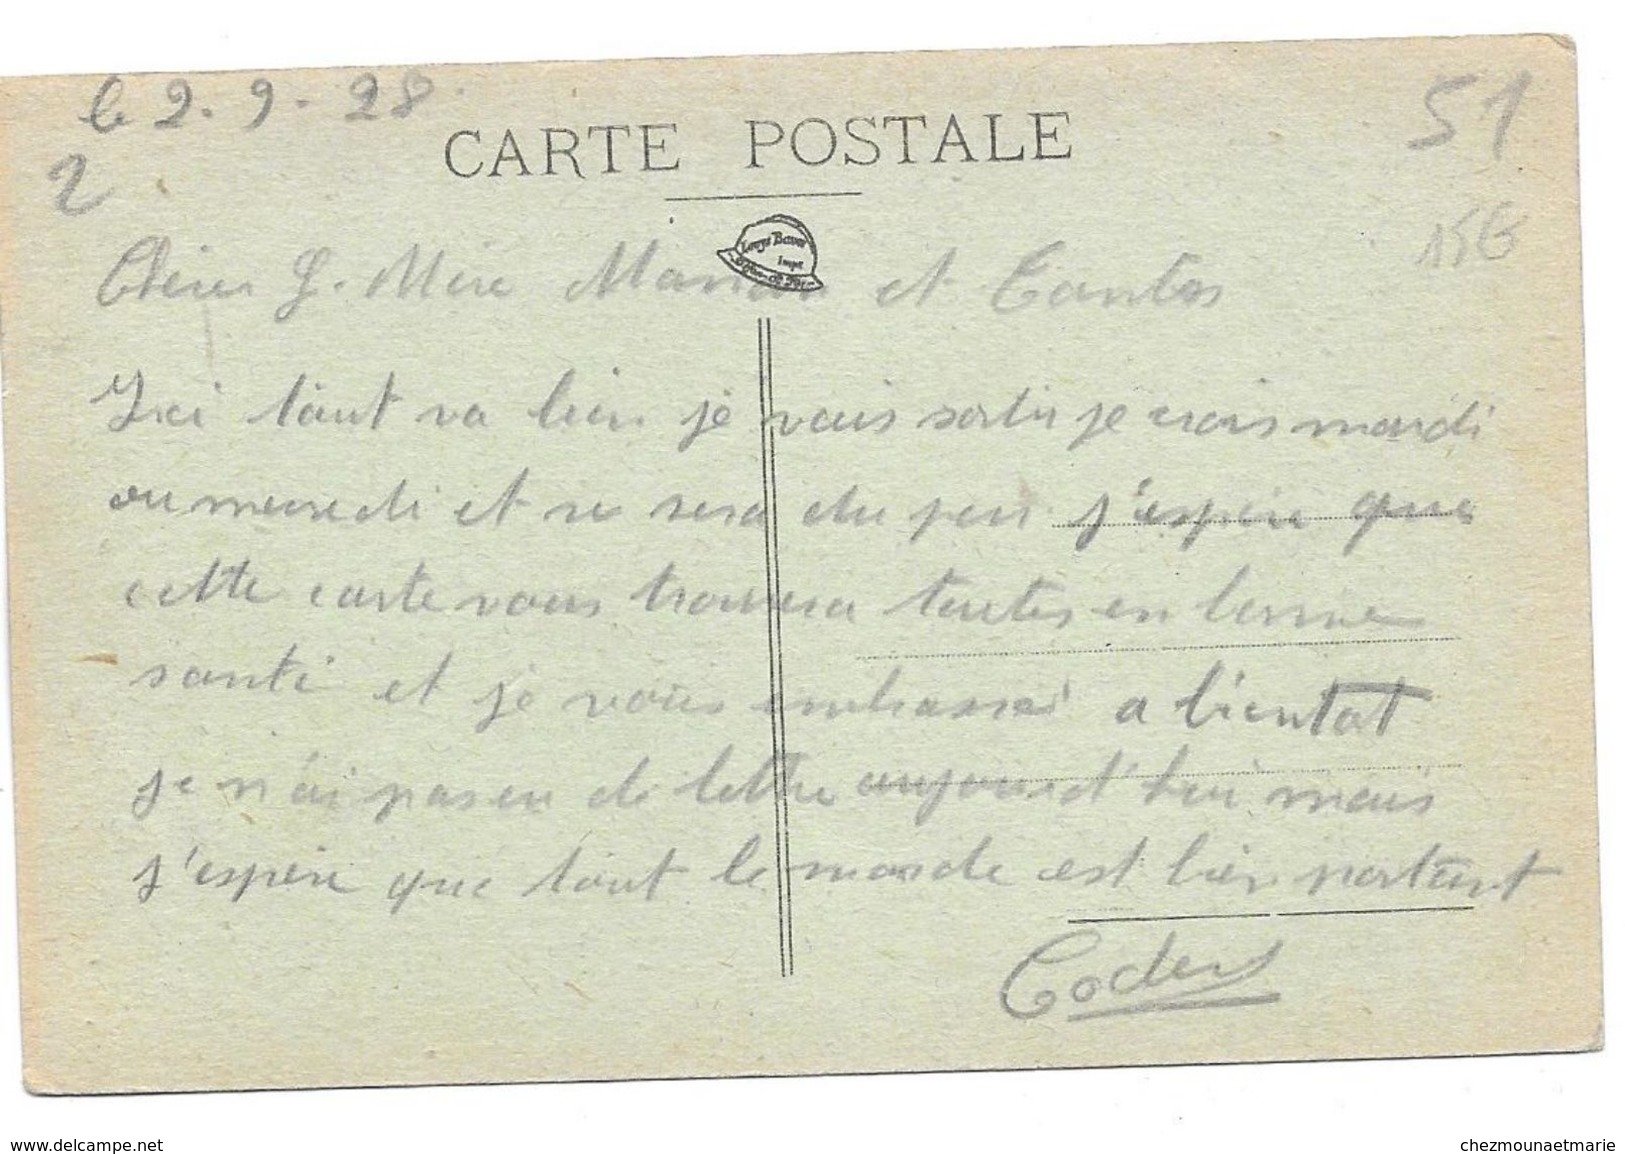 le 2.9.28
51
CARTE POSTALE
2
15€
Louys Bauer
Impr
Chères G. Mère Maman et Tantes
Ici tout va bien je vais sortir je crois mardi
ou mercredi et ce sera du peu j'espère que
cette carte vous trouvera toutes en bonne
santé et je vous embrasse a bientot
je n'ai pas eu de lettre aujourd'hui mais
j'espère que tout le monde est bien portant
www.delcampe.net
chezmounaetmarie